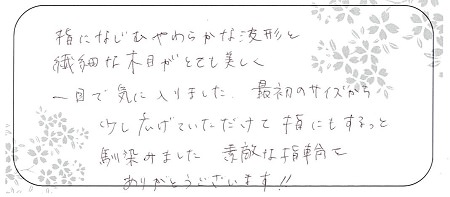 指になじむやわらかな波形と
繊細な木目がとても美しく
一目で気に入りました。最初のサイズから
少し広げていただけて 指にもするっと
馴染みました 素敵な指輪を
ありがとうございます!!